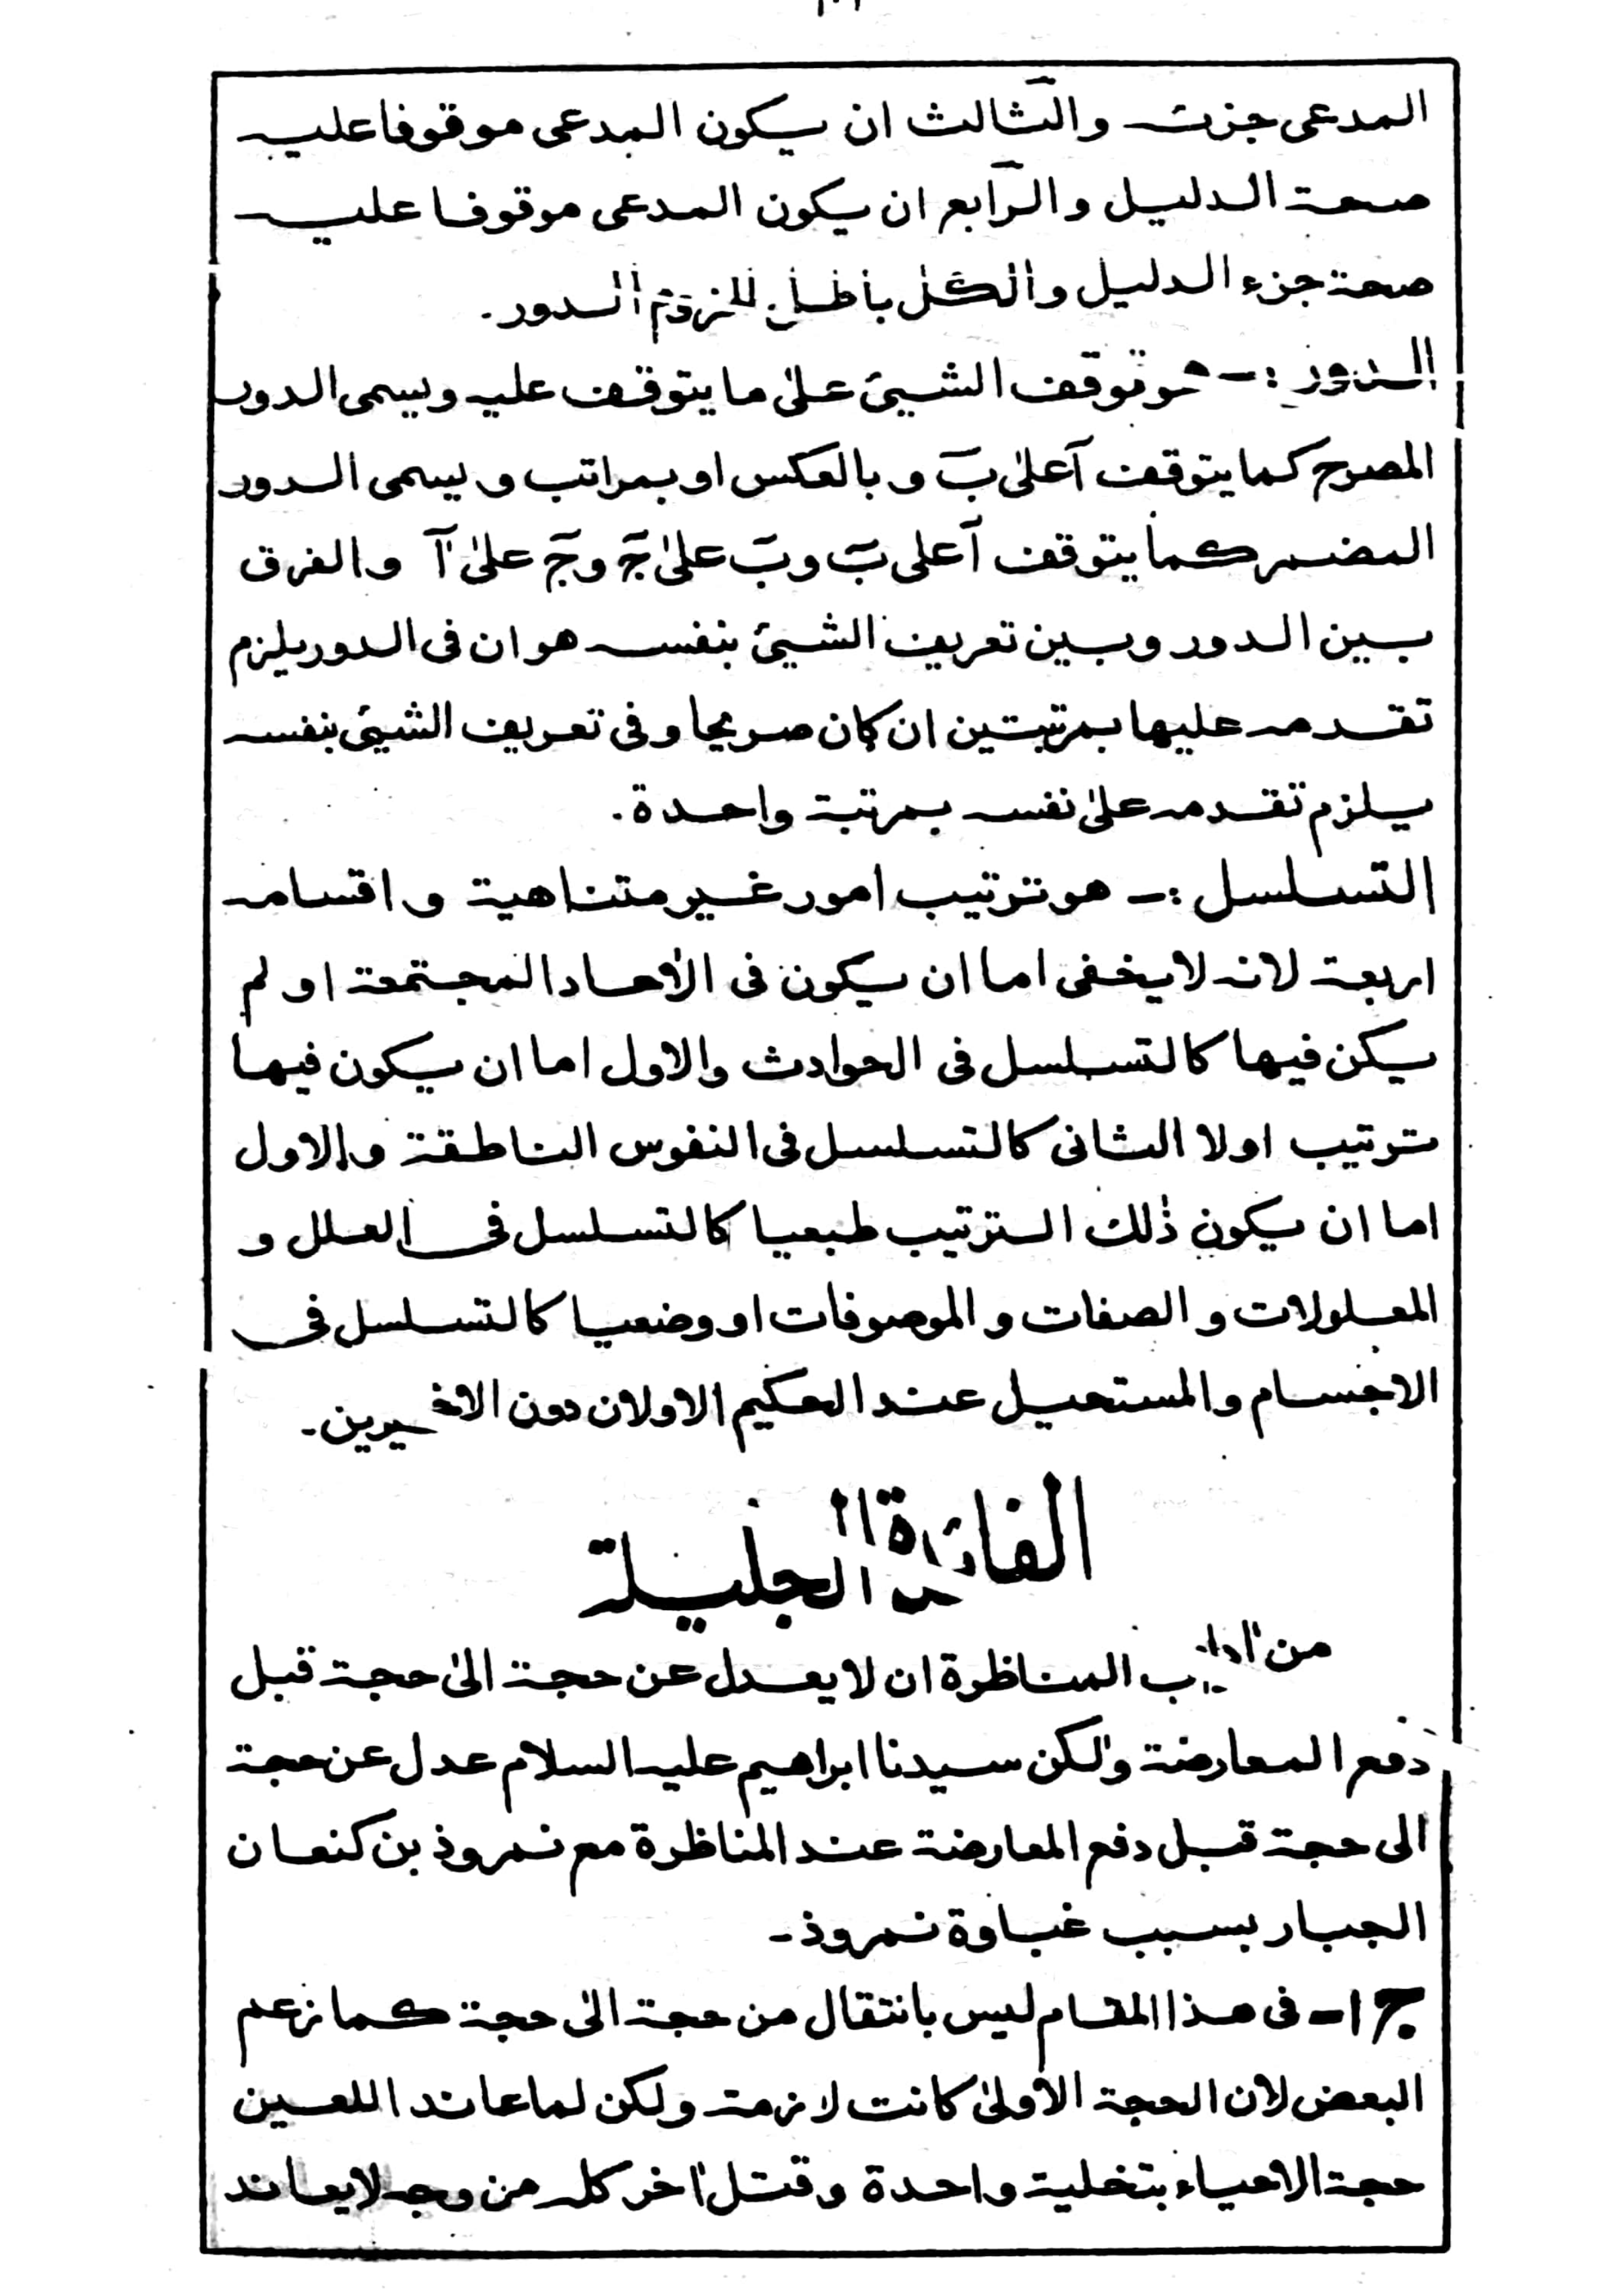 المدعى جزئه والثالث ان يكون المدعى موقوفا عليه
صحة الدليل والرابع ان يكون المدعى موقوفا عليه
صحة جزء الدليل والكل باطل للزوم الدور۔
الدور :- هو توقف الشيئ علىٰ ما يتوقف عليه ويسمى الدور
المصرح كما يتوقف آ علىٰ بَ وبالعكس او بمراتب ويسمى الدور
المضمر كما يتوقف آ على بَ وبَ علىٰ جَ وجَ علىٰ آ والفرق
بين الدور وبين تعريف الشيئ بنفسه هو ان فى الدور يلزم
تقدمه عليها بمرتبتين ان كان صريحا وفى تعريف الشيئ بنفسه
يلزم تقدمه علىٰ نفسه بمرتبة واحدة۔
التسلسل :- هو ترتيب امور غير متناهية واقسامه
اربعة لانه لا يخفى اما ان يكون فى الاٰحاد المجتمعة او لم
يكن فيها كالتسلسل فى الحوادث والاول اما ان يكون فيها
ترتيب اولا الثانى كالتسلسل فى النفوس الناطقة والاول
اما ان يكون ذٰلك الترتيب طبعيا كالتسلسل فى العلل و
المعلولات والصفات والموصوفات او وضعيا كالتسلسل فى
الاجسام والمستحيل عند الحكيم الاولان دون الاخيرين۔
الفائدة الجليلة
من اداب المناظرة ان لا يعدل عن حجة الىٰ حجة قبل
دفع المعارضة ولكن سيدنا ابراهيم عليه السلام عدل عن حجة
الى حجة قبل دفع المعارضة عند المناظرة مع نمروذ بن كنعان
الجبار بسبب غباوة نمروذ۔
ج ۱- فى هذا المقام ليس بانتقال من حجة الىٰ حجة كما زعم
البعض لان الحجة الاولىٰ كانت لازمة ولكن لما عاند اللعين
حجة الاحياء بتخلية واحدة وقتل اٰخر كلمه من وجه لا يعاند